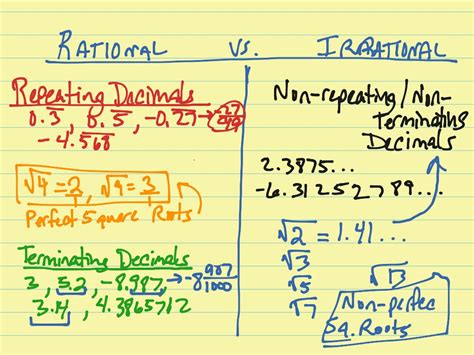 RATIONAL vs. IRRATIONAL
Repeating Decimals
0.3̅, 0.5̅, -0.27 →
-4.568
√4 = 2, √9 = 3
Perfect Square Roots
Terminating Decimals
3, 5.2, -8.987, → -8 987/1000
3.14, 4.3865712
Non-repeating / Non-
Terminating
Decimals
2.3875...
-6.31252789...
√2 = 1.41...
√3
√5
√7
√13
Non-perfec
Sq. Roots